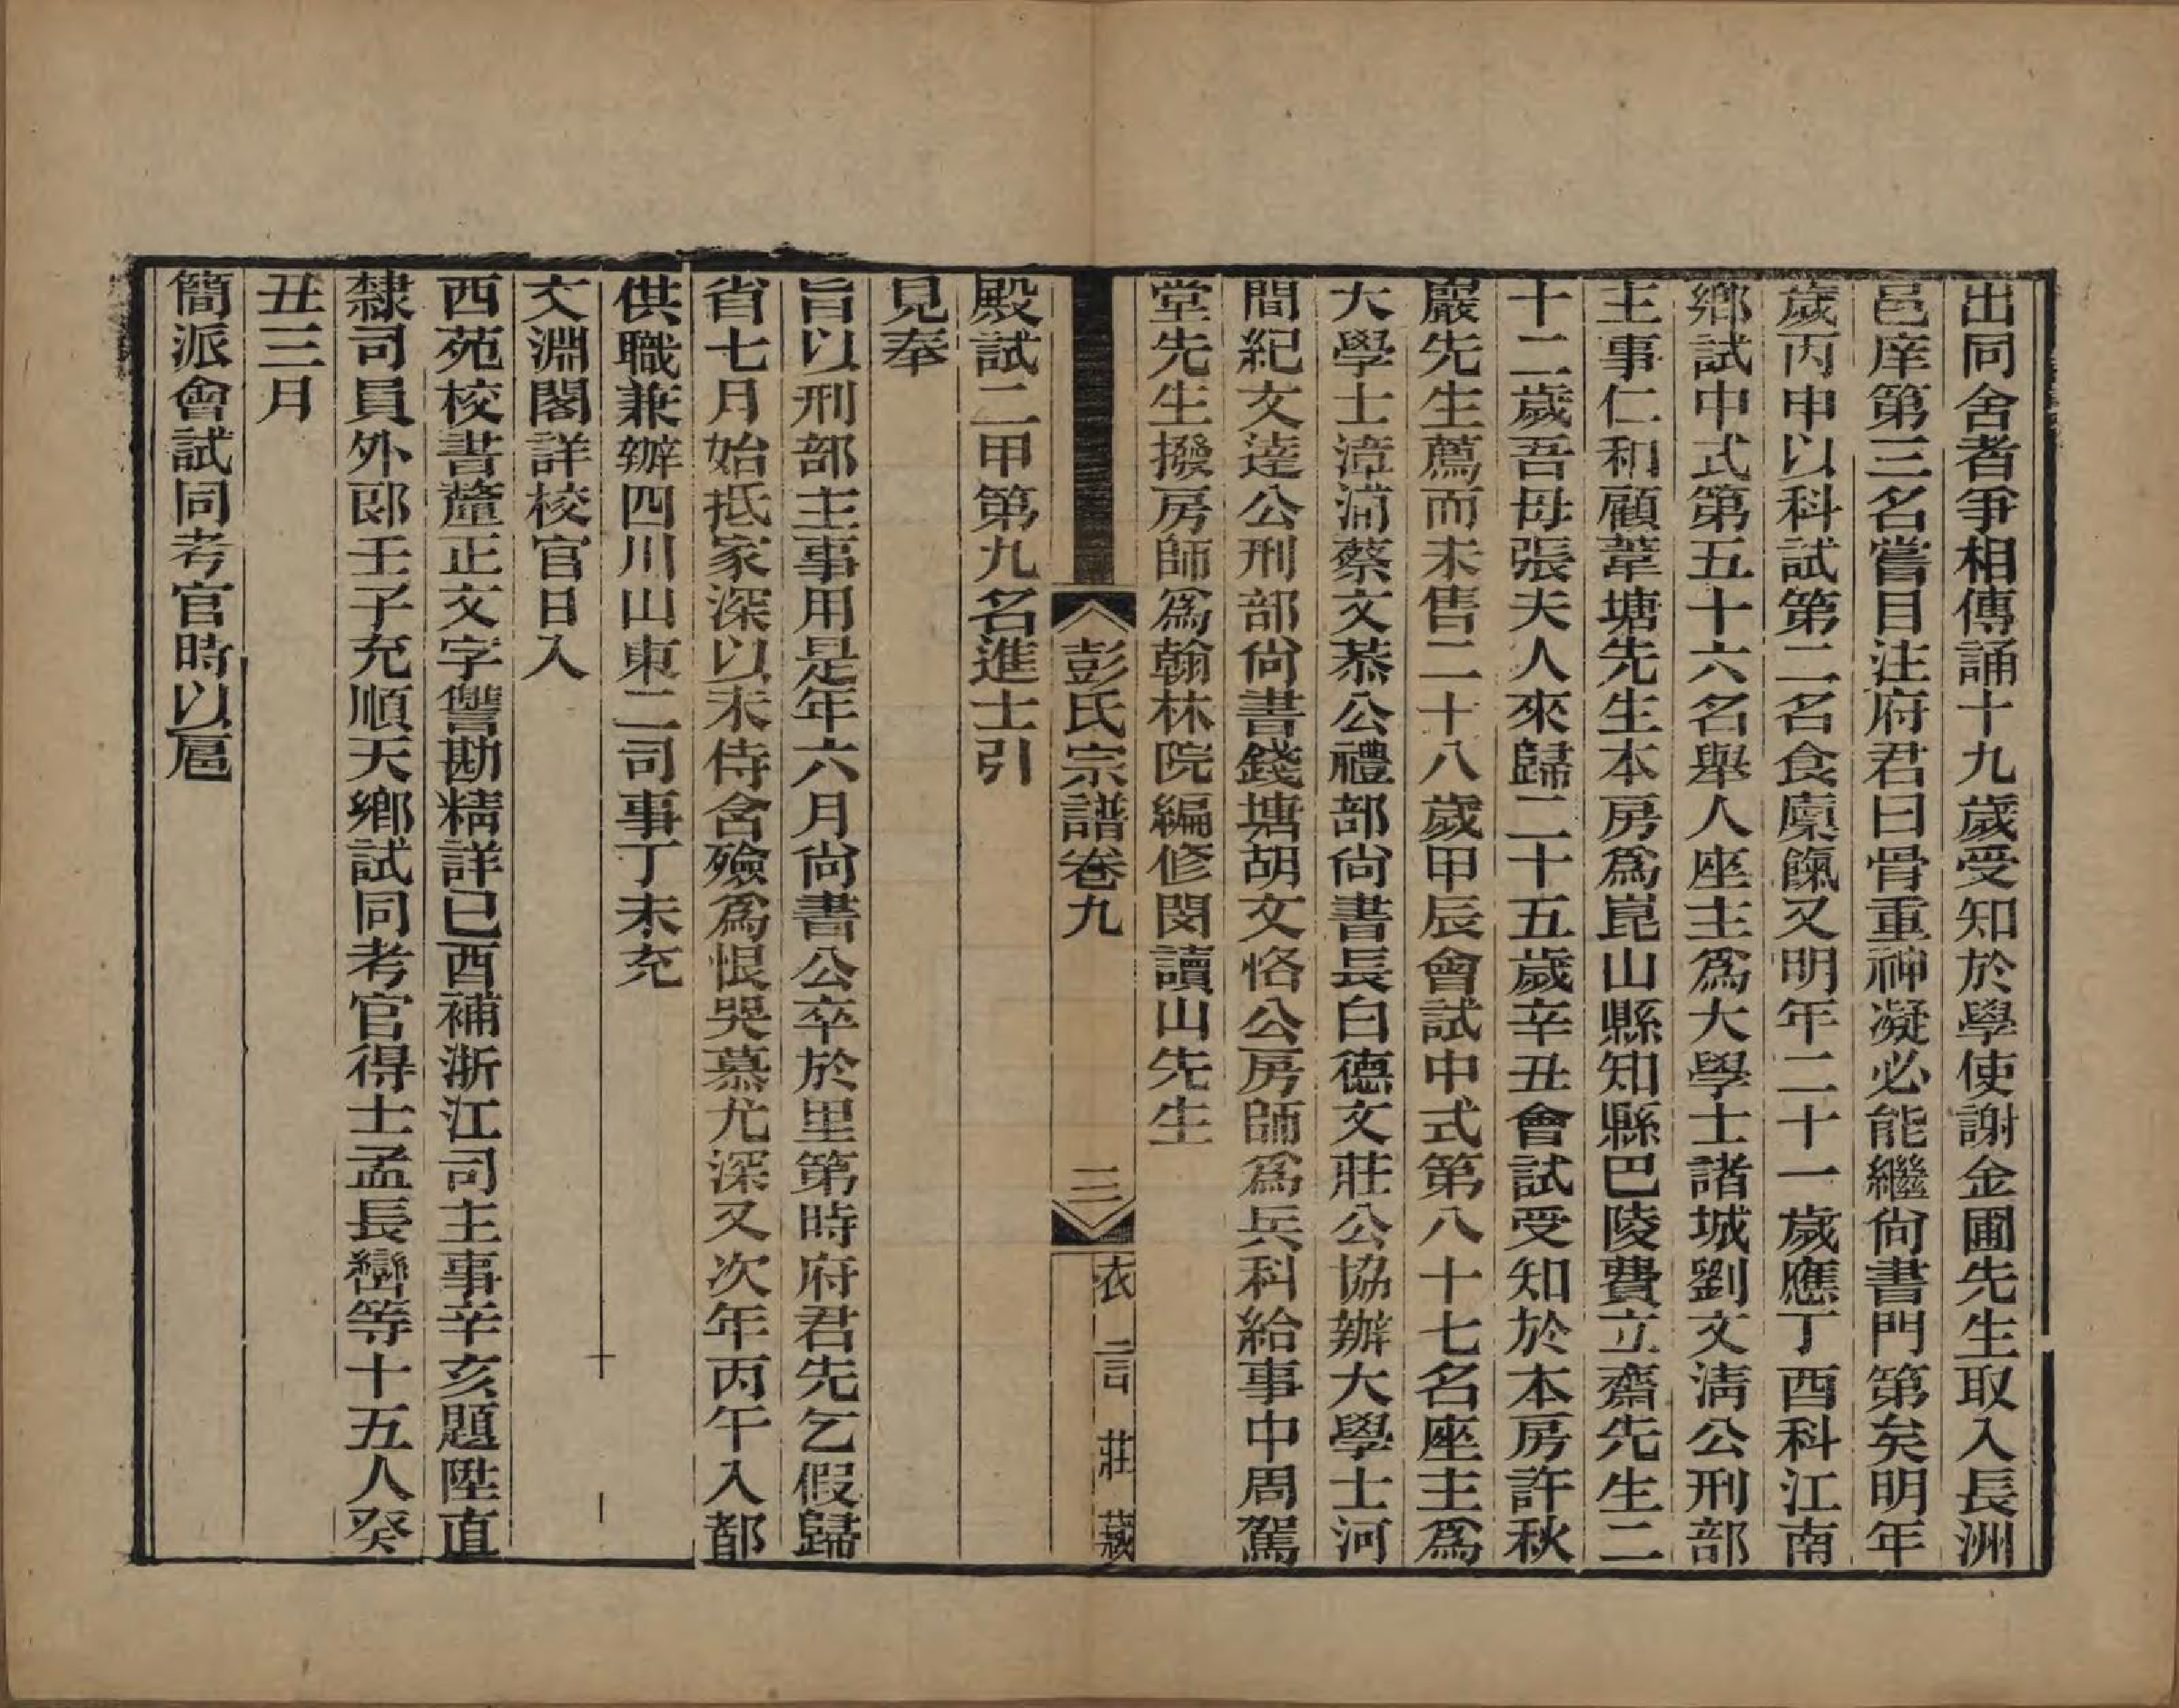 出同舍者爭相傳誦十九歲受知於學使謝金圃先生取入長洲
邑庠第三名嘗目注府君曰骨重神凝必能繼尙書門第矣明年
歲丙申以科試第二名食廩餼又明年二十一歲應丁酉科江南
鄉試中式第五十六名舉人座主爲大學士諸城劉文淸公刑部
主事仁和顧葦塘先生本房爲崑山縣知縣巴陵費立齋先生二
十二歲吾母張夫人來歸二十五歲辛丑會試受知於本房許秋
巖先生薦而未售二十八歲甲辰會試中式第八十七名座主爲
大學士漳浦蔡文恭公禮部尙書長白德文莊公協辦大學士河
間紀文達公刑部尙書錢塘胡文恪公房師爲兵科給事中周駕
堂先生撥房師爲翰林院編修閔讀山先生
彭氏宗譜卷九
三
衣言莊藏
殿試二甲第九名進士引
見奉
旨以刑部主事用是年六月尙書公卒於里第時府君先乞假歸
省七月始抵家深以未侍含殮爲恨哭慕尤深又次年丙午入都
供職兼辦四川山東二司事丁未充
文淵閣詳校官日入
西苑校書釐正文字讐勘精詳己酉補浙江司主事辛亥題陞直
隸司員外郎壬子充順天鄉試同考官得士孟長巒等十五人癸
丑三月
簡派會試同考官時以扈